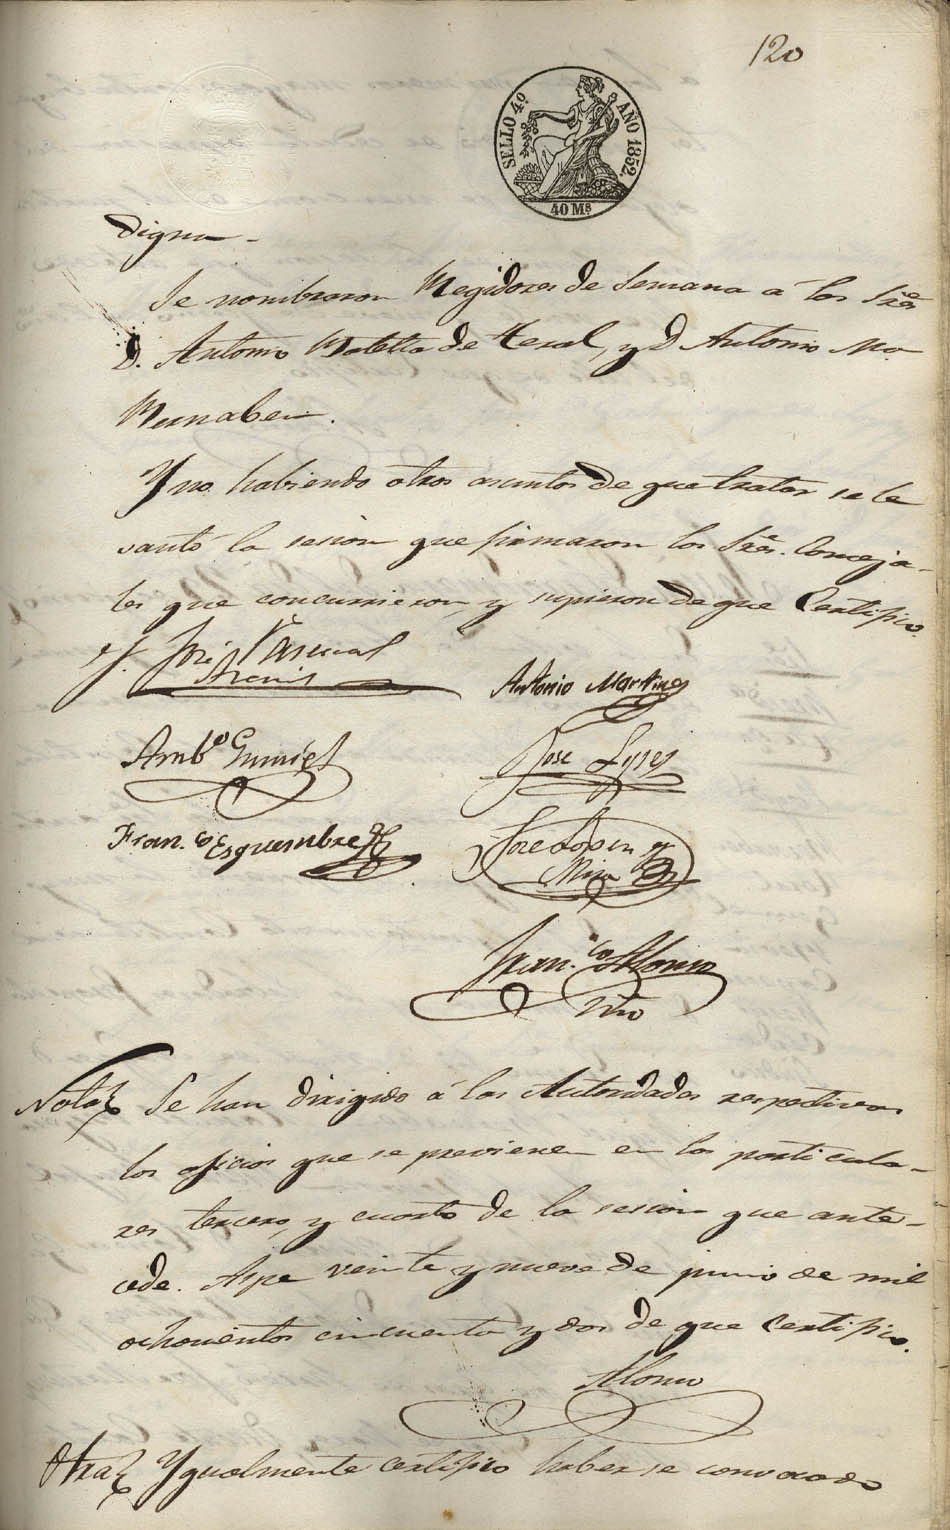 120
SELLO 4º AÑO 1852.
40 Ms
digna.
Se nombraron Regidores de Semana a los Sres
D. Antonio de y D. Antonio Mª
Y no habiendo otros asuntos de que tratar se le
vantó la sesion que firmaron los Sres. Conceja-
les que concurrieron, y supieron de que Certifico.
José Pascual
Antonio Martinez
Ambº Gumiel
Jose
Fran.co Esquembre
Jose Lopez y
Mira
Fran.co Alonso
Srio
Nota Se han dirigido á las Autoridades respectivas
los oficios que se previenen en los particula-
res tercero, y cuarto de la sesion que ante-
cede. Aspe veinte y nueve de junio de mil
ochocientos cincuenta y dos de que Certifico.
Alonso
Otra Ygualmente certifico haberse convocado